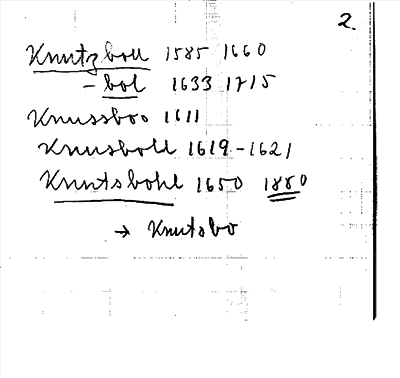 2.
Knutzboll 1585 1660
- bol 1633 1715
Knussboo 1611
Knusbold 1619-1621
Knutsbohl 1650 1880
→ Knutsbo